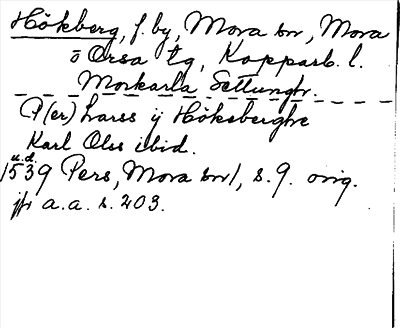 Hökberg, f. by, Mora sn, Mora
o Orsa tg, Kopparb. l.
Morkarla Settungh.
P(er) Larss ij Höksberghe
Karl Olss ibid.
u.d.
1539 Pers, Mora sn/, s. 9. orig.
jfr a.a. s. 203.